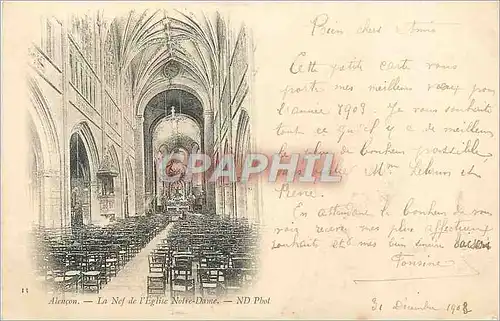 Bien chers Amis
Cette petite carte vous
porte mes meilleurs vœux pour
l'année 1903. Je vous souhaite
tout ce qu'il y a de meilleur
le plus de bonheur possible
Mme Lebrun et
Pierre.
En attendant le bonheur de vous
voir recevez mes plus affectueux
souhaits et mes bien
CPAPHIL.COM
11
Alençon. — La Nef de l'Eglise Notre-Dame. — ND Phot
31 Décembre 1902